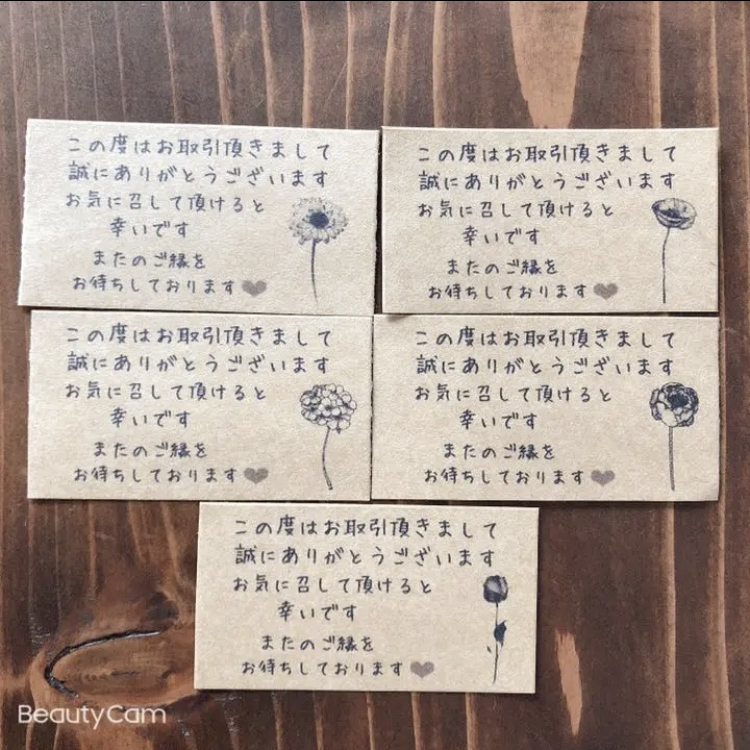 この度はお取引頂きまして
誠にありがとうございます
お気に召して頂けると
幸いです
またのご縁を
お待ちしております
この度はお取引頂きまして
誠にありがとうございます
お気に召して頂けると
幸いです
またのご縁を
お待ちしております
この度はお取引頂きまして
誠にありがとうございます
お気に召して頂けると
幸いです
またのご縁を
お待ちしております
この度はお取引頂きまして
誠にありがとうございます
お気に召して頂けると
幸いです
またのご縁を
お待ちしております
この度はお取引頂きまして
誠にありがとうございます
お気に召して頂けると
幸いです
またのご縁を
お待ちしております
BeautyCam